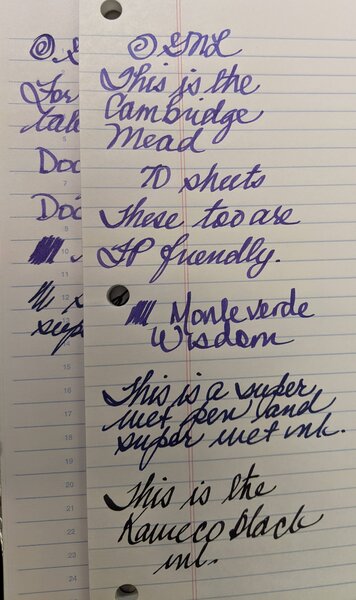 This is the
Cambridge
Mead
70 sheets
These too are
FP friendly.
Monteverde
Wisdom
This is a super
wet pen and
super wet ink.
This is the
Black
ink.
For
Doc
Doc
10
11
12
13
14
15
16
17
18
19
20
21
22
23
24